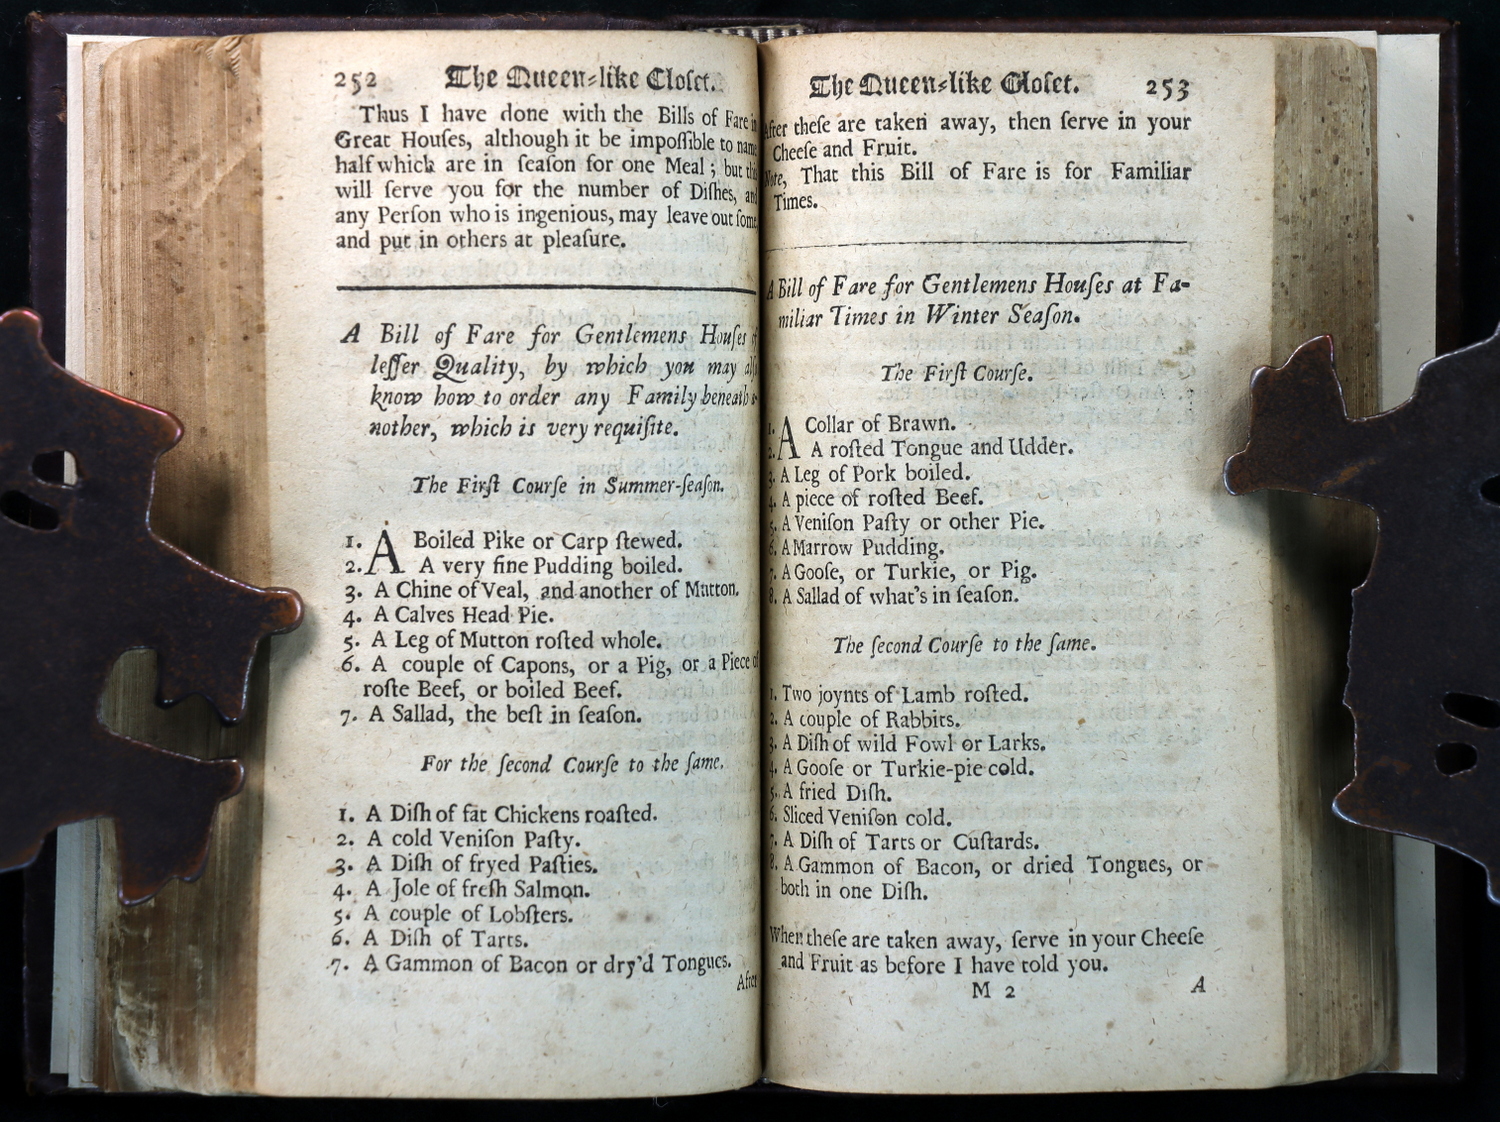 252 The Queen-like Cloſet.
Thus I have done with the Bills of Fare in
Great Houſes, although it be impoſſible to name
half which are in ſeaſon for one Meal; but this
will ſerve you for the number of Diſhes, and
any Perſon who is ingenious, may leave out ſome,
and put in others at pleaſure.
A Bill of Fare for Gentlemens Houſes of
leſſer Quality, by which you may alſo
know how to order any Family beneath a-
nother, which is very requiſite.
The Firſt Courſe in Summer-ſeaſon.
1. A Boiled Pike or Carp ſtewed.
2. A very fine Pudding boiled.
3. A Chine of Veal, and another of Mutton.
4. A Calves Head Pie.
5. A Leg of Mutton roſted whole.
6. A couple of Capons, or a Pig, or a Piece of
roſte Beef, or boiled Beef.
7. A Sallad, the beſt in ſeaſon.
For the ſecond Courſe to the ſame.
1. A Diſh of fat Chickens roaſted.
2. A cold Veniſon Paſty.
3. A Diſh of fryed Paſties.
4. A Jole of freſh Salmon.
5. A couple of Lobſters.
6. A Diſh of Tarts.
7. A Gammon of Bacon or dry'd Tongues.
After
The Queen-like Cloſet. 253
After theſe are taken away, then ſerve in your
Cheeſe and Fruit.
Note, That this Bill of Fare is for Familiar
Times.
A Bill of Fare for Gentlemens Houſes at Fa-
miliar Times in Winter Seaſon.
The Firſt Courſe.
1. A Collar of Brawn.
2. A roſted Tongue and Udder.
3. A Leg of Pork boiled.
4. A piece of roſted Beef.
5. A Veniſon Paſty or other Pie.
6. A Marrow Pudding.
7. A Gooſe, or Turkie, or Pig.
8. A Sallad of what's in ſeaſon.
The ſecond Courſe to the ſame.
1. Two joynts of Lamb roſted.
2. A couple of Rabbits.
3. A Diſh of wild Fowl or Larks.
4. A Gooſe or Turkie-pie cold.
5. A fried Diſh.
6. Sliced Veniſon cold.
7. A Diſh of Tarts or Cuſtards.
8. A Gammon of Bacon, or dried Tongues, or
both in one Diſh.
When theſe are taken away, ſerve in your Cheeſe
and Fruit as before I have told you.
M 2 A